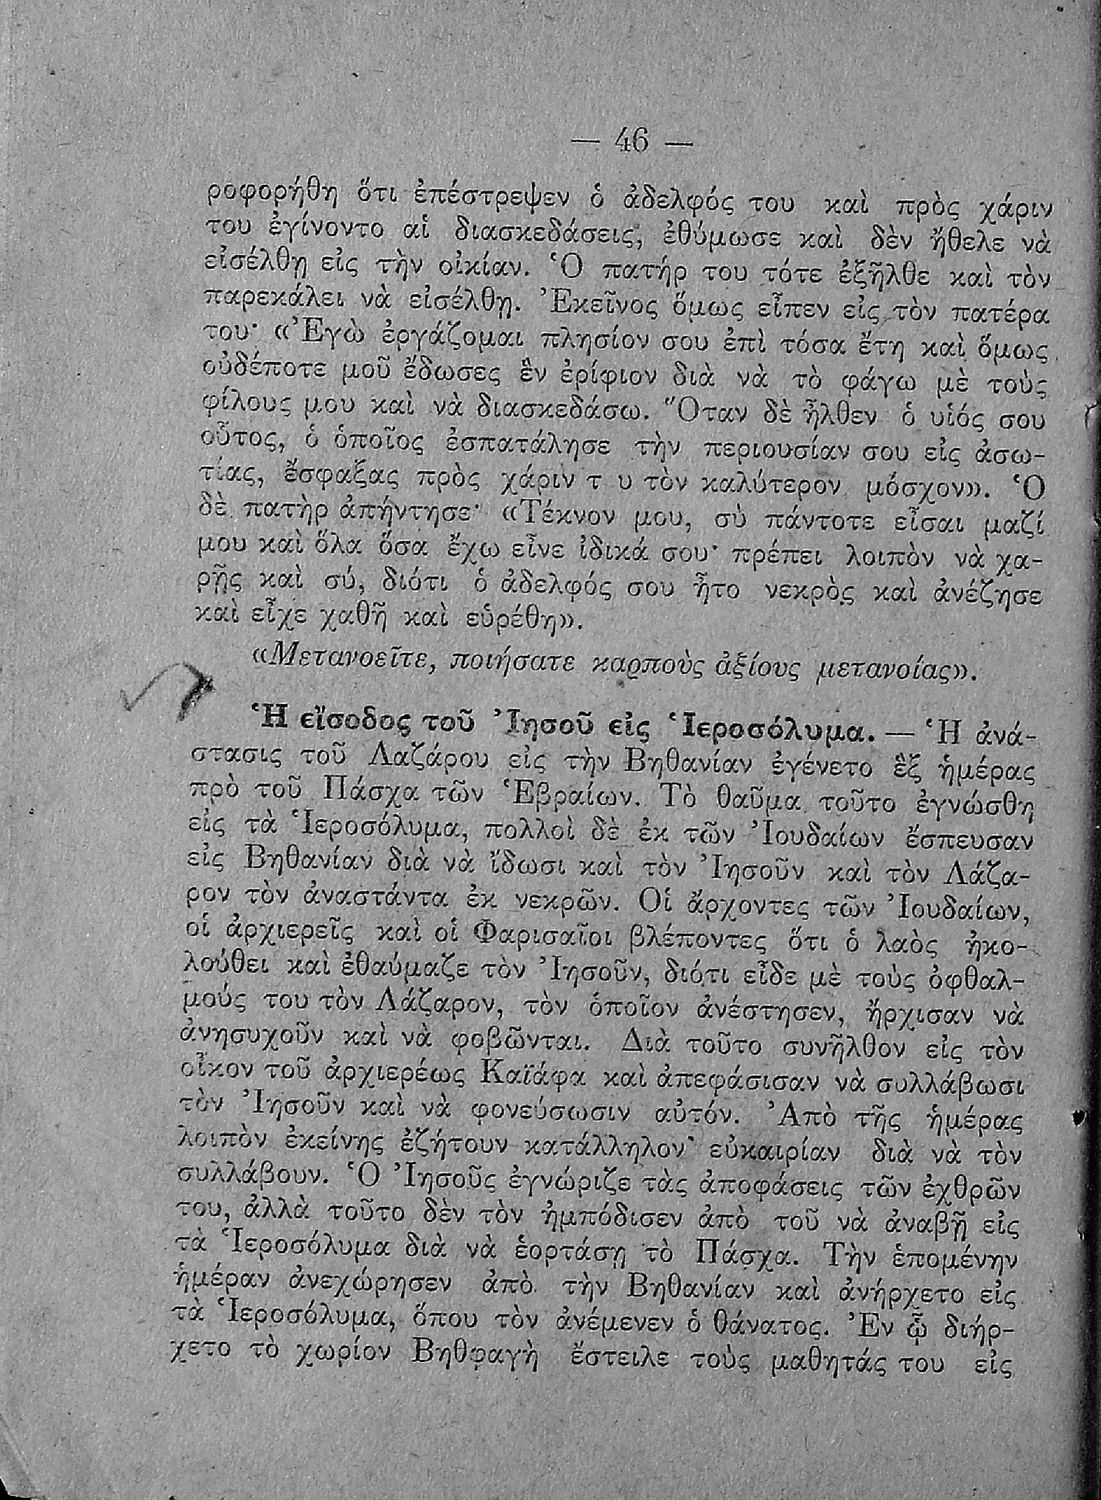 — 46 —
ροφορήθη ὅτι ἐπέστρεψεν ὁ ἀδελφός του καὶ πρὸς χάριν
του ἐγίνοντο αἱ διασκεδάσεις, ἐθύμωσε καὶ δὲν ἤθελε νὰ
εἰσέλθῃ εἰς τὴν οἰκίαν. Ὁ πατήρ του τότε ἐξῆλθε καὶ τὸν
παρεκάλει νὰ εἰσέλθῃ. Ἐκεῖνος ὅμως εἶπεν εἰς τὸν πατέρα
του· «Ἐγὼ ἐργάζομαι πλησίον σου ἐπὶ τόσα ἔτη καὶ ὅμως
οὐδέποτε μοῦ ἔδωσες ἓν ἐρίφιον διὰ νὰ τὸ φάγω μὲ τοὺς
φίλους μου καὶ νὰ διασκεδάσω. Ὅταν δὲ ἦλθεν ὁ υἱός σου
οὗτος, ὁ ὁποῖος ἐσπατάλησε τὴν περιουσίαν σου εἰς ἀσω-
τίας, ἔσφαξας πρὸς χάριν τ υ τὸν καλύτερον μόσχον». Ὁ
δὲ πατὴρ ἀπήντησε· «Τέκνον μου, σὺ πάντοτε εἶσαι μαζί
μου καὶ ὅλα ὅσα ἔχω εἶνε ἰδικά σου· πρέπει λοιπὸν νὰ χα-
ρῇς καὶ σύ, διότι ὁ ἀδελφός σου ἦτο νεκρὸς καὶ ἀνέζησε
καὶ εἶχε χαθῆ καὶ εὑρέθη».
«Μετανοεῖτε, ποιήσατε καρποὺς ἀξίους μετανοίας».
Ἡ εἴσοδος τοῦ Ἰησοῦ εἰς Ἱεροσόλυμα. — Ἡ ἀνά-
στασις τοῦ Λαζάρου εἰς τὴν Βηθανίαν ἐγένετο ἓξ ἡμέρας
πρὸ τοῦ Πάσχα τῶν Ἑβραίων. Τὸ θαῦμα τοῦτο ἐγνώσθη
εἰς τὰ Ἱεροσόλυμα, πολλοὶ δὲ ἐκ τῶν Ἰουδαίων ἔσπευσαν
εἰς Βηθανίαν διὰ νὰ ἴδωσι καὶ τὸν Ἰησοῦν καὶ τὸν Λάζα-
ρον τὸν ἀναστάντα ἐκ νεκρῶν. Οἱ ἄρχοντες τῶν Ἰουδαίων,
οἱ ἀρχιερεῖς καὶ οἱ Φαρισαῖοι βλέποντες ὅτι ὁ λαὸς ἠκο-
λούθει καὶ ἐθαύμαζε τὸν Ἰησοῦν, διότι εἶδε μὲ τοὺς ὀφθαλ-
μούς του τὸν Λάζαρον, τὸν ὁποῖον ἀνέστησεν, ἤρχισαν νὰ
ἀνησυχοῦν καὶ νὰ φοβῶνται. Διὰ τοῦτο συνῆλθον εἰς τὸν
οἶκον τοῦ ἀρχιερέως Καϊάφα καὶ ἀπεφάσισαν νὰ συλλάβωσι
τὸν Ἰησοῦν καὶ νὰ φονεύσωσιν αὐτόν. Ἀπὸ τῆς ἡμέρας
λοιπὸν ἐκείνης ἐζήτουν κατάλληλον εὐκαιρίαν διὰ νὰ τὸν
συλλάβουν. Ὁ Ἰησοῦς ἐγνώριζε τὰς ἀποφάσεις τῶν ἐχθρῶν
του, ἀλλὰ τοῦτο δὲν τὸν ἠμπόδισεν ἀπὸ τοῦ νὰ ἀναβῇ εἰς
τὰ Ἱεροσόλυμα διὰ νὰ ἑορτάσῃ τὸ Πάσχα. Τὴν ἑπομένην
ἡμέραν ἀνεχώρησεν ἀπὸ τὴν Βηθανίαν καὶ ἀνήρχετο εἰς
τὰ Ἱεροσόλυμα, ὅπου τὸν ἀνέμενεν ὁ θάνατος. Ἐν ᾧ διήρ-
χετο τὸ χωρίον Βηθφαγὴ ἔστειλε τοὺς μαθητάς του εἰς